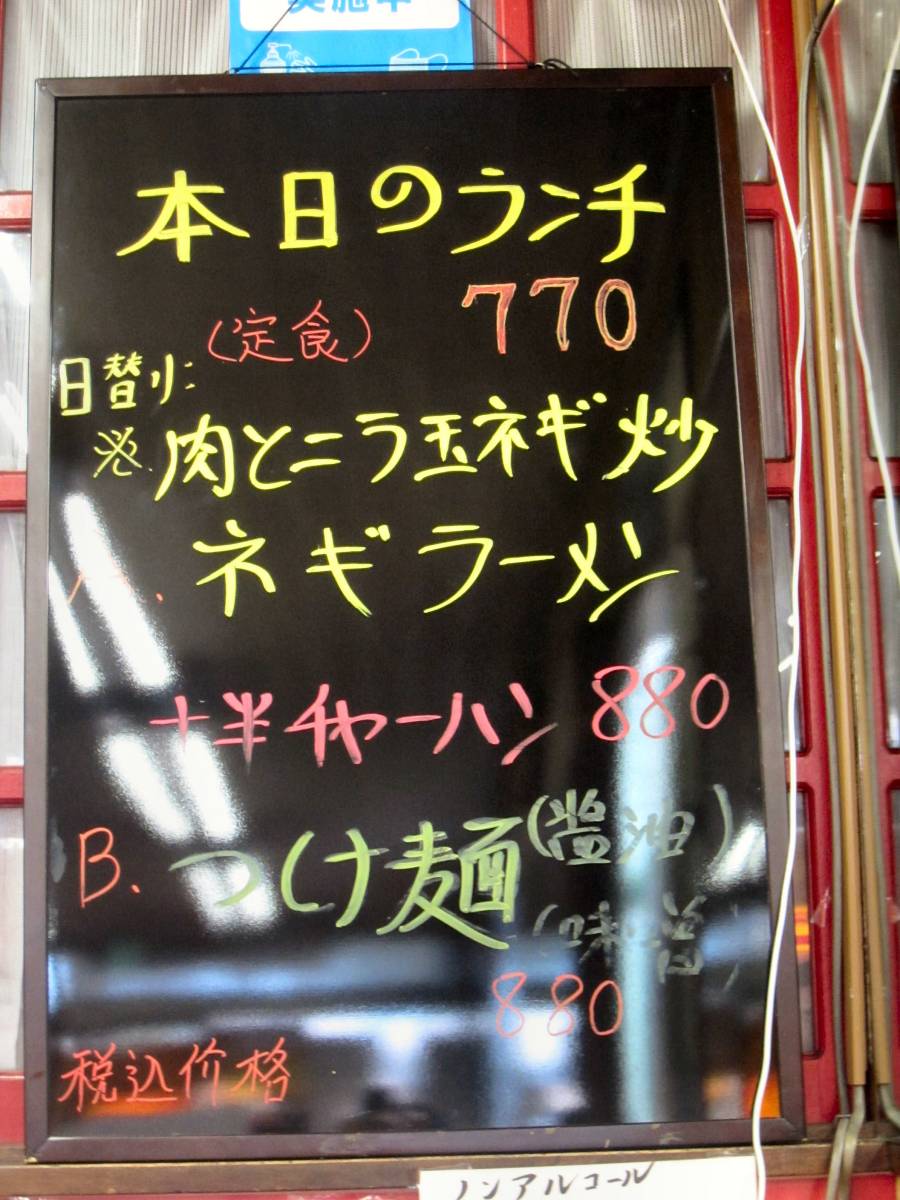 実施中
本日のランチ
(定食) 770
日替り:
※. 肉とニラ玉ネギ炒
A. ネギラーメン
+半チャーハン 880
B. つけ麺(醤油)
(味噌)
880
税込价格
ノンアルコール